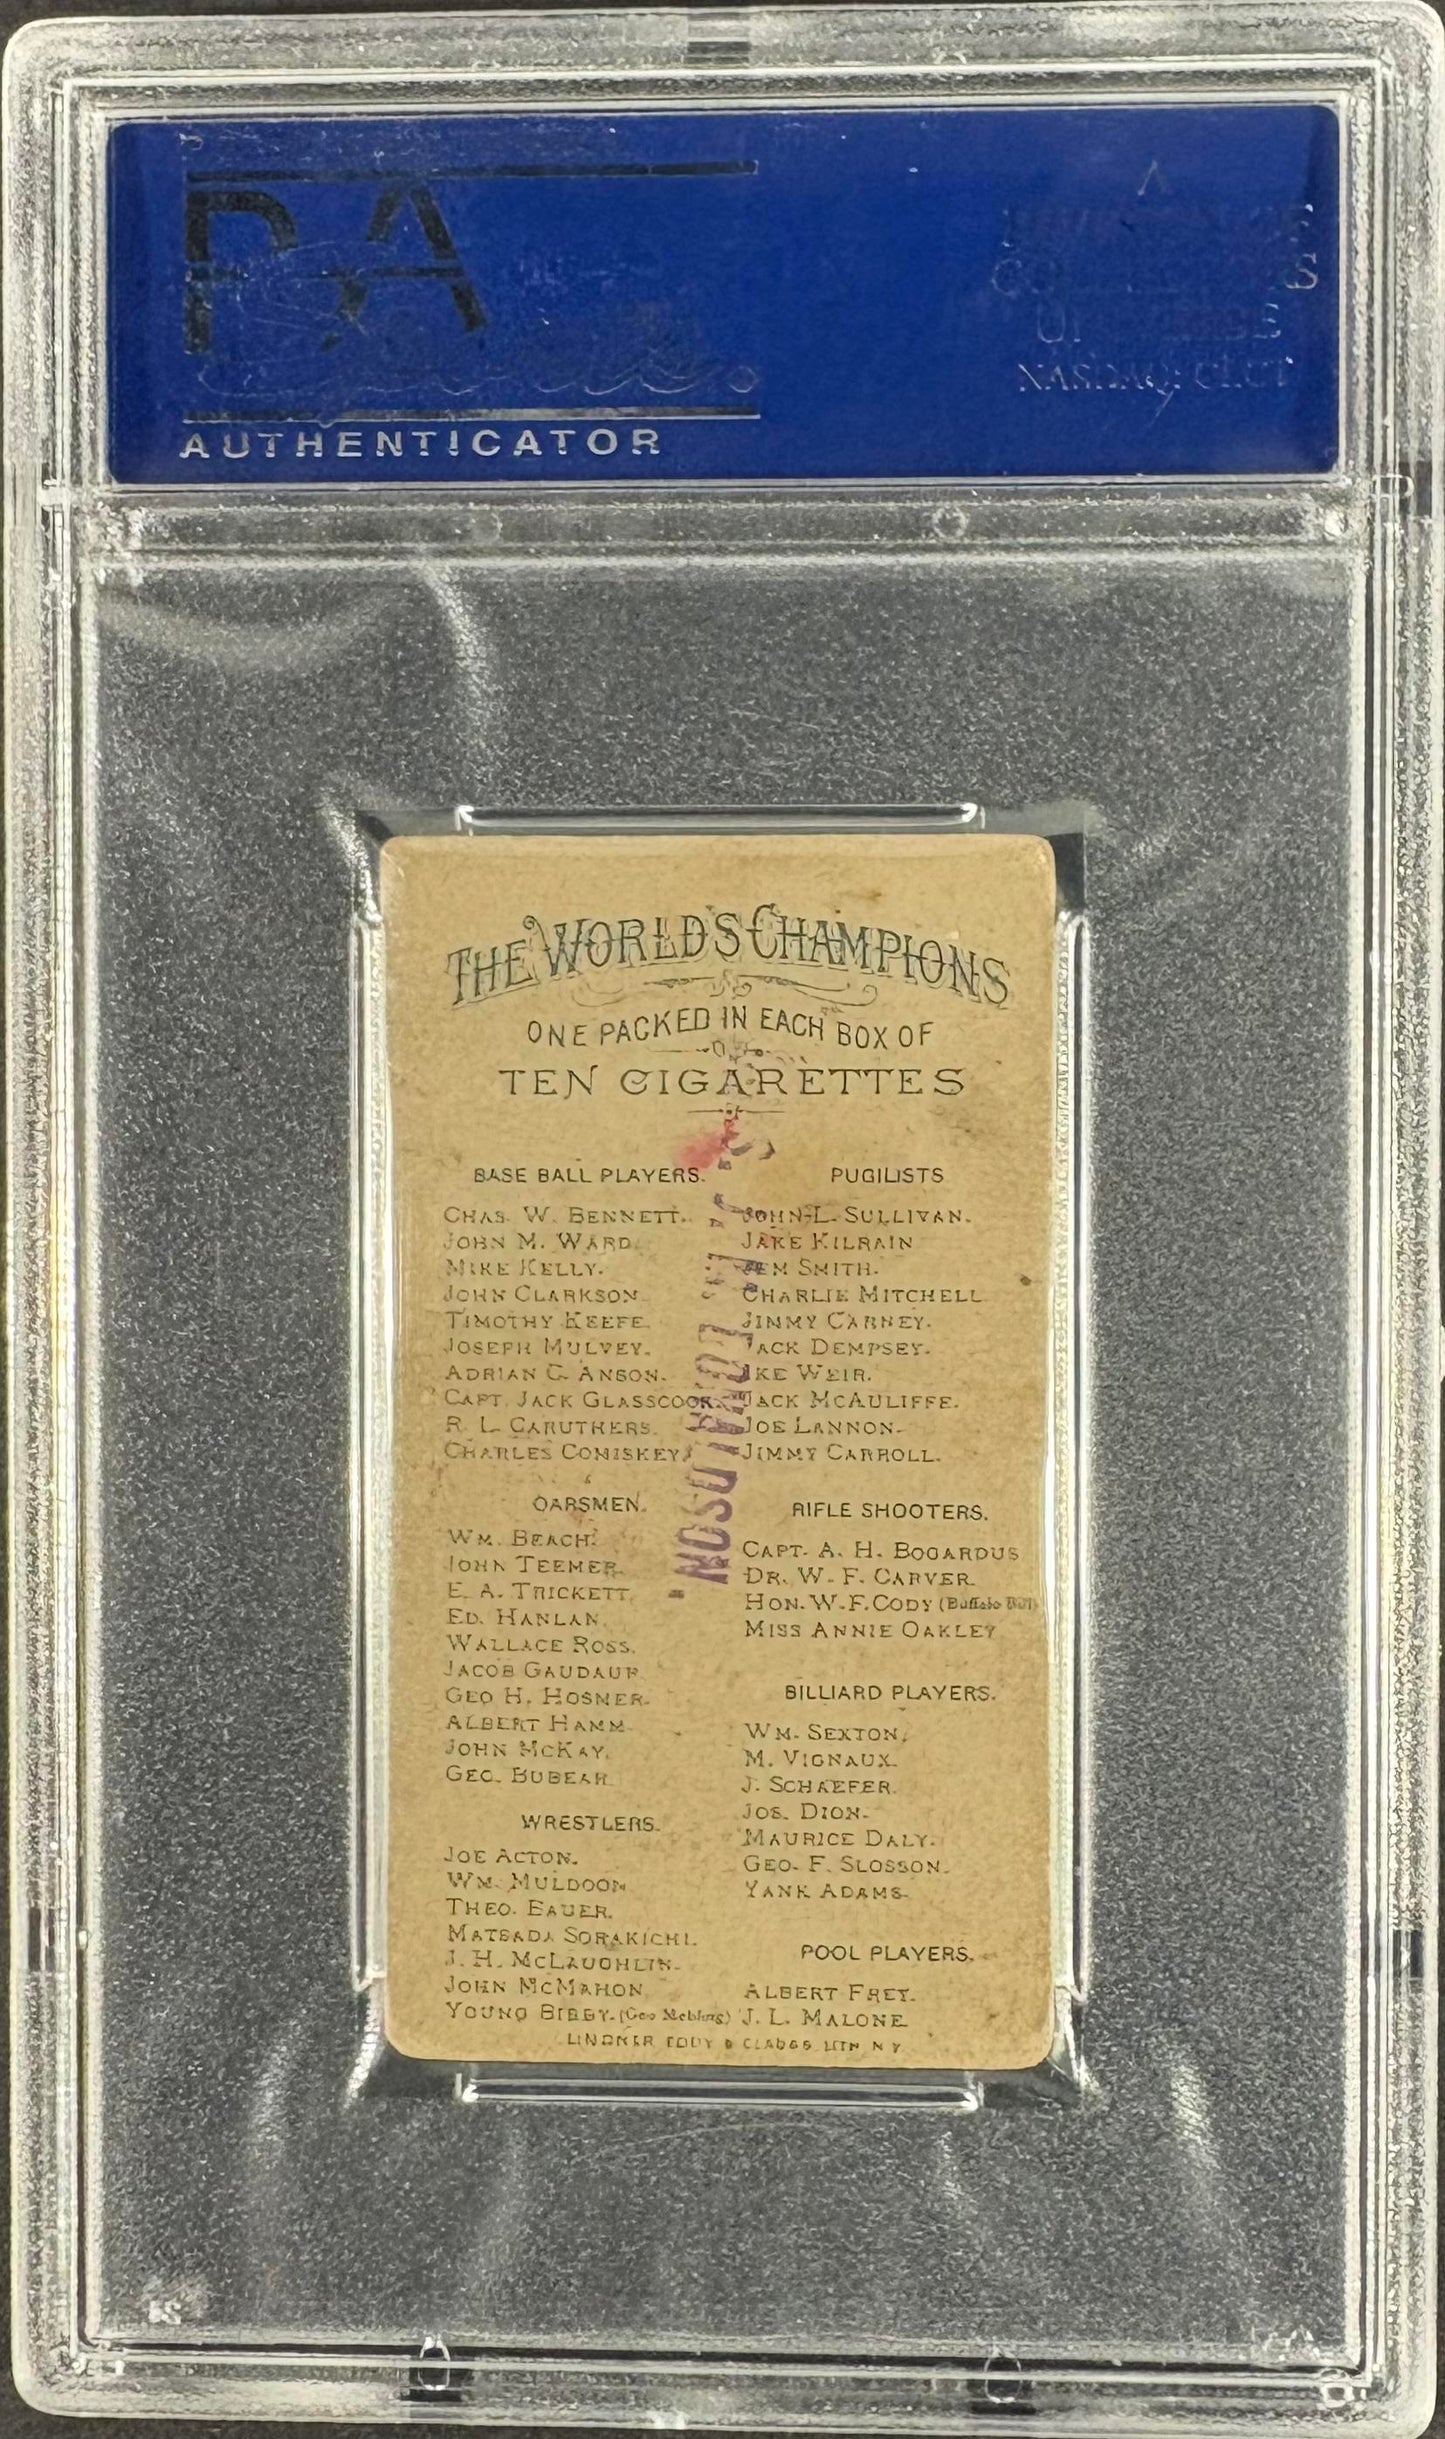 AUTHENTICATOR
NASDAQ: CLCT
THE WORLD'S CHAMPIONS
ONE PACKED IN EACH BOX OF
TEN CIGARETTES
BASE BALL PLAYERS.
CHAS. W. BENNETT.
JOHN M. WARD.
MIKE KELLY.
JOHN CLARKSON.
TIMOTHY KEEFE.
JOSEPH MULVEY.
ADRIAN C. ANSON.
CAPT. JACK GLASSCOCK.
R. L. CARUTHERS.
CHARLES COMISKEY.
OARSMEN.
WM. BEACH.
JOHN TEEMER.
E. A. TRICKETT.
ED. HANLAN.
WALLACE ROSS.
JACOB GAUDAUR.
GEO H. HOSMER.
ALBERT HAMM.
JOHN MCKAY.
GEO. BUBEAR.
WRESTLERS.
JOE ACTON.
WM. MULDOON.
THEO. BAUER.
MATSADA SORAKICHI.
J. H. MCLAUGHLIN.
JOHN MCMAHON.
YOUNG BIBBY. (Geo Mehling)
PUGILISTS
JOHN L. SULLIVAN.
JAKE KILRAIN
JEM SMITH.
CHARLIE MITCHELL
JIMMY CARNEY.
JACK DEMPSEY.
IKE WEIR.
JACK MCAULIFFE.
JOE LANNON.
JIMMY CARROLL.
RIFLE SHOOTERS.
CAPT. A. H. BOGARDUS
DR. W. F. CARVER.
HON. W. F. CODY (Buffalo Bill)
MISS ANNIE OAKLEY
BILLIARD PLAYERS.
WM. SEXTON.
M. VIGNAUX.
J. SCHAEFER.
JOS. DION.
MAURICE DALY.
GEO. F. SLOSSON.
YANK ADAMS.
POOL PLAYERS.
ALBERT FREY.
J. L. MALONE.
LINDNER, EDDY & CLAUSS, LITH. N. Y.